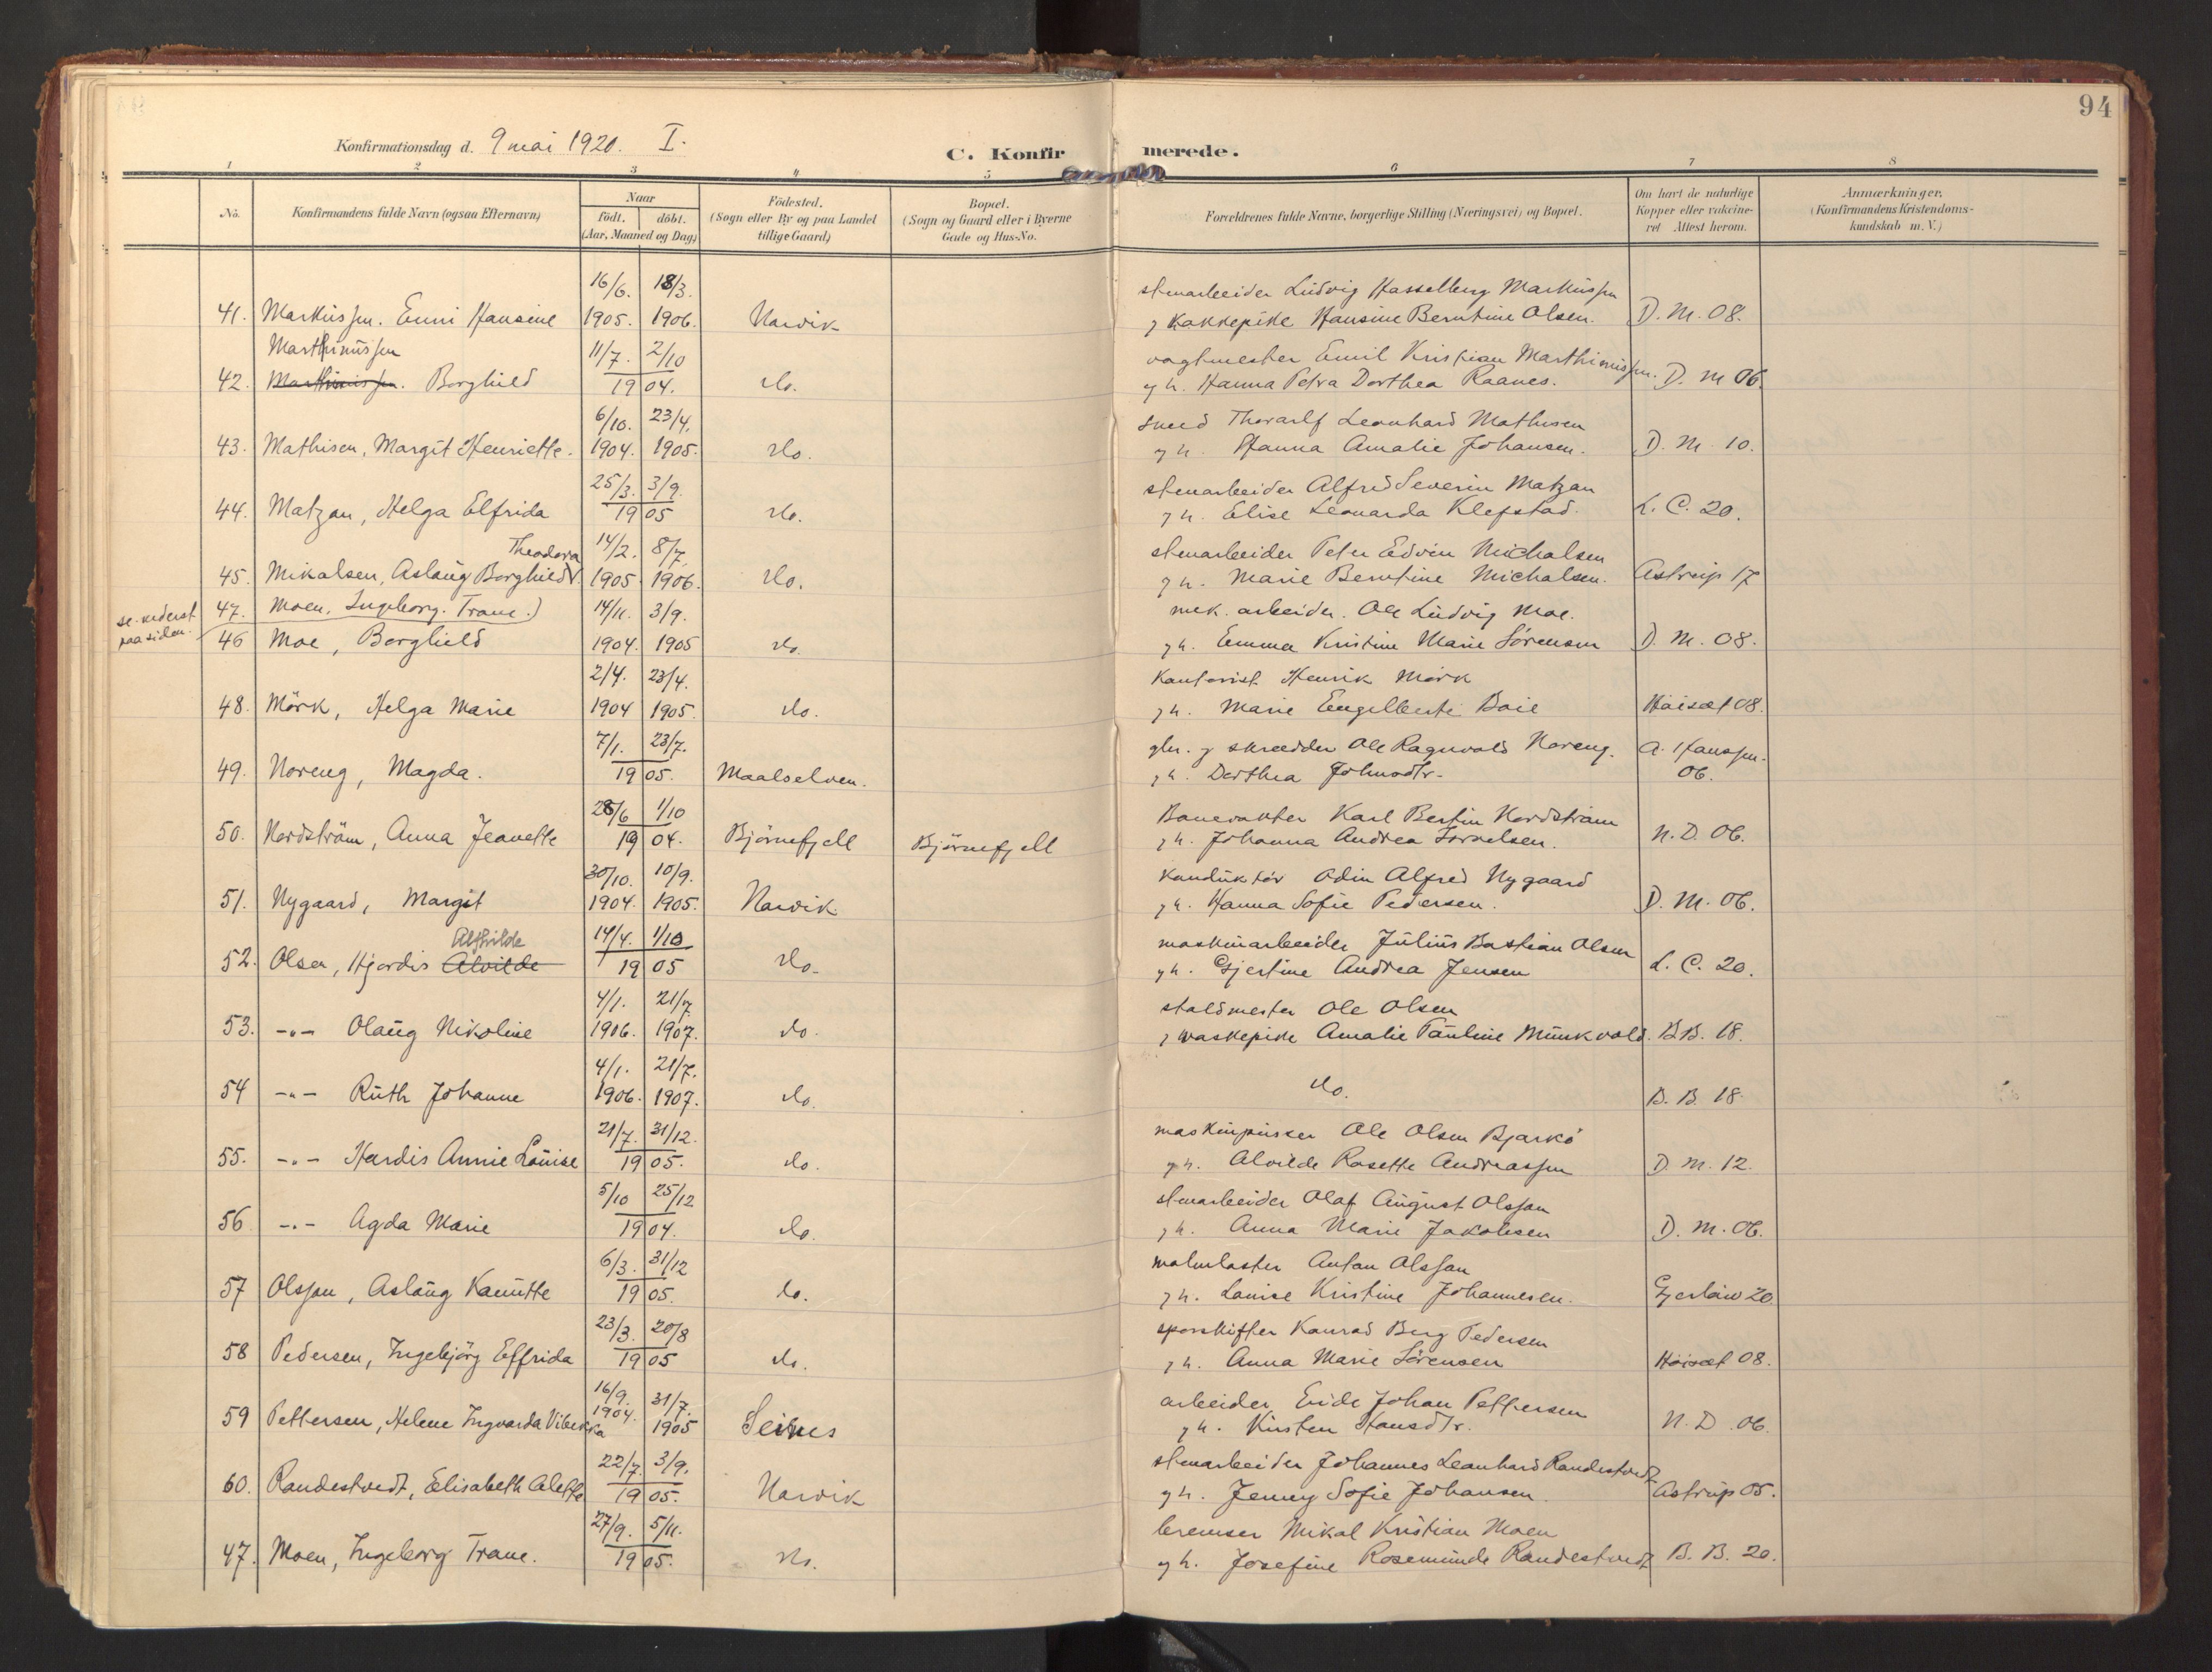 94
Konfirmationsdag d. 9 mai 1920. I.
C. Konfirmerede.
1 2 3 4 5 6 7 8
No.
Konfirmandens fulde Navn (ogsaa Efternavn)
Naar
födt. döbt.
(Aar, Maaned og Dag)
Födested.
(Sogn eller By og paa Landet
tillige Gaard)
Bopæl.
(Sogn og Gaard eller i Byerne
Gade og Hus-No.
Forældrenes fulde Navne, borgerlige Stilling (Næringsvei) og Bopæl.
Om havt de naturlige
Kopper eller vakcine-
ret Attest herom.
Anmærkninger.
(Konfirmandens Kristendoms-
kundskab m. V.)
16/6. 18/3. stenarbeider Ludvig Hasselberg Markussen
41. Markussen. Enni Hansine 1905. 1906. Narvik g kokkepike Hansine Berntine Olsen. D. M. 08.
Marthinussen 11/7. 2/10 vagtmester Emil Kristian Marthinussen.
42. Marthinussen. Borghild 1904. do. g h. Hanna Petra Dorthea Raanes. D. M 06.
6/10. 23/4. smed Thoralf Leonhard Mathisen
43. Mathisen, Margit Henriette. 1904. 1905. do. g h. Hanna Amalie Johansen. D. M. 10.
25/3. 3/9. stenarbeider Alfred Severin Matzan
44. Matzan, Helga Elfrida 1905 do. g h. Elise Leonarda Klefstad. L. C. 20.
Theodora 14/2. 8/7. stenarbeider Peter Edvin Michalsen
45. Mikalsen, Aslaug Borghild 1905 1906. do. g h. Marie Berntine Michalsen. Astrup 17
se nederst paa siden. 47. Moen, Ingeborg. Trane.) 14/11. 3/9. mek. arbeider. Ole Ludvig Moe.
46 Moe, Borghild 1904. 1905 do. g h. Emma Kristine Marie Sörensen D. M. 08.
2/4. 23/4. Kontorist Henrik Mörk
48. Mörk, Helga Marie 1904 1905. do. g h. Marie Engelberte Boie Höisæt 08.
7/1. 23/7. gbr. g skrædder Ole Ragnvald Noreng.
49. Noreng, Magda. 1905. Maalselven. g h. Dorthea Johnsdtr. A. Hanssen. 06.
28/6 1/10 Banevokter Karl Bertin Nordström
50. Nordström, Anna Jeanette 1904. Björnefjell Björnefjell g h. Johanna Andrea Israelsen. N. D. 06.
30/10. 10/9. Konduktör Odin Alfred Nygaard
51. Nygaard, Margit 1904. 1905. Narvik g h. Hanna Sofie Pedersen. D. M. 06.
Alfhilde 14/4. 1/10 maskinarbeider Julius Bastian Olsen
52. Olsen, Hjordis Alvilde 1905 do. g h. Gjertine Andrea Jensen L. C. 20.
4/1. 21/7 staldmester Ole Olsen
53. -"- Olaug Nikoline 1906. 1907. do. g vaskepike Amalie Pauline Munkvold. B.B. 18.
4/1. 21/7.
54 -"- Ruth Johanne 1906. 1907. do. do. B. B. 18.
21/7. 31/12. maskinpusser Ole Olsen Bjarkö
55. -"- Hardis Annie Louise 1905. do. g h. Alvilde Rosette Andreassen D. M. 12.
5/10 25/12 stenarbeider Olaf August Olsson
56. -"- Agda Marie 1904. do. g h. Anna Marie Jakobsen D. M. 06.
6/3. 31/12 malmlaster Anton Olsson
57 Olsson, Aslaug Kamitte 1905. do. g h. Louise Kristine Johannesen. Gjerlöw 20.
23/3. 20/8 sporskifter Konrad Berg Pedersen
58 Pedersen, Ingebjörg Effrida 1905 do. g h. Anna Marie Sörensen Höisæt 08.
16/9. 31/7. arbeider Johan Pettersen
59 Pettersen, Helene Ingvarda Vibekka 1904. 1905 Seines g h. Kirsten Hansdtr. N. D. 06.
22/7. 3/9. stenarbeider Johannes Leonhard Randestvedt
60. Randestvedt, Elisabeth Alette 1905. Narvik g h. Jenny Sofie Johansen. Astrup 05.
27/9. 5/11. bremser Mikal Kristian Moen
47. Moen, Ingeborg Trane. 1905. do. g h. Josefine Rosemunde Randestvedt B. B. 20.